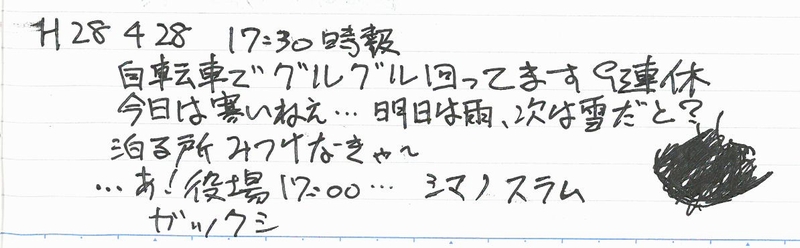 H28 4 28 17:30時報
自転車でグルグル回ってます 9連休
今日は寒いねぇ… 明日は雨、次は雪だと?
泊る所みつけなきゃ〜
…あ!役場17:00… シマノスラム
ガックシ